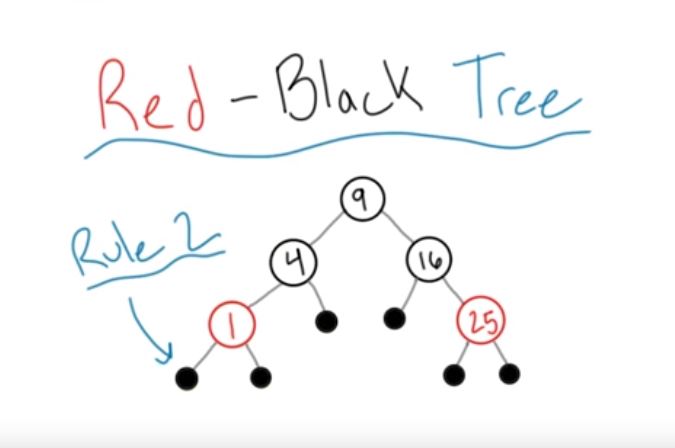 Red - Black Tree
Rule 2
9
4
16
1
25